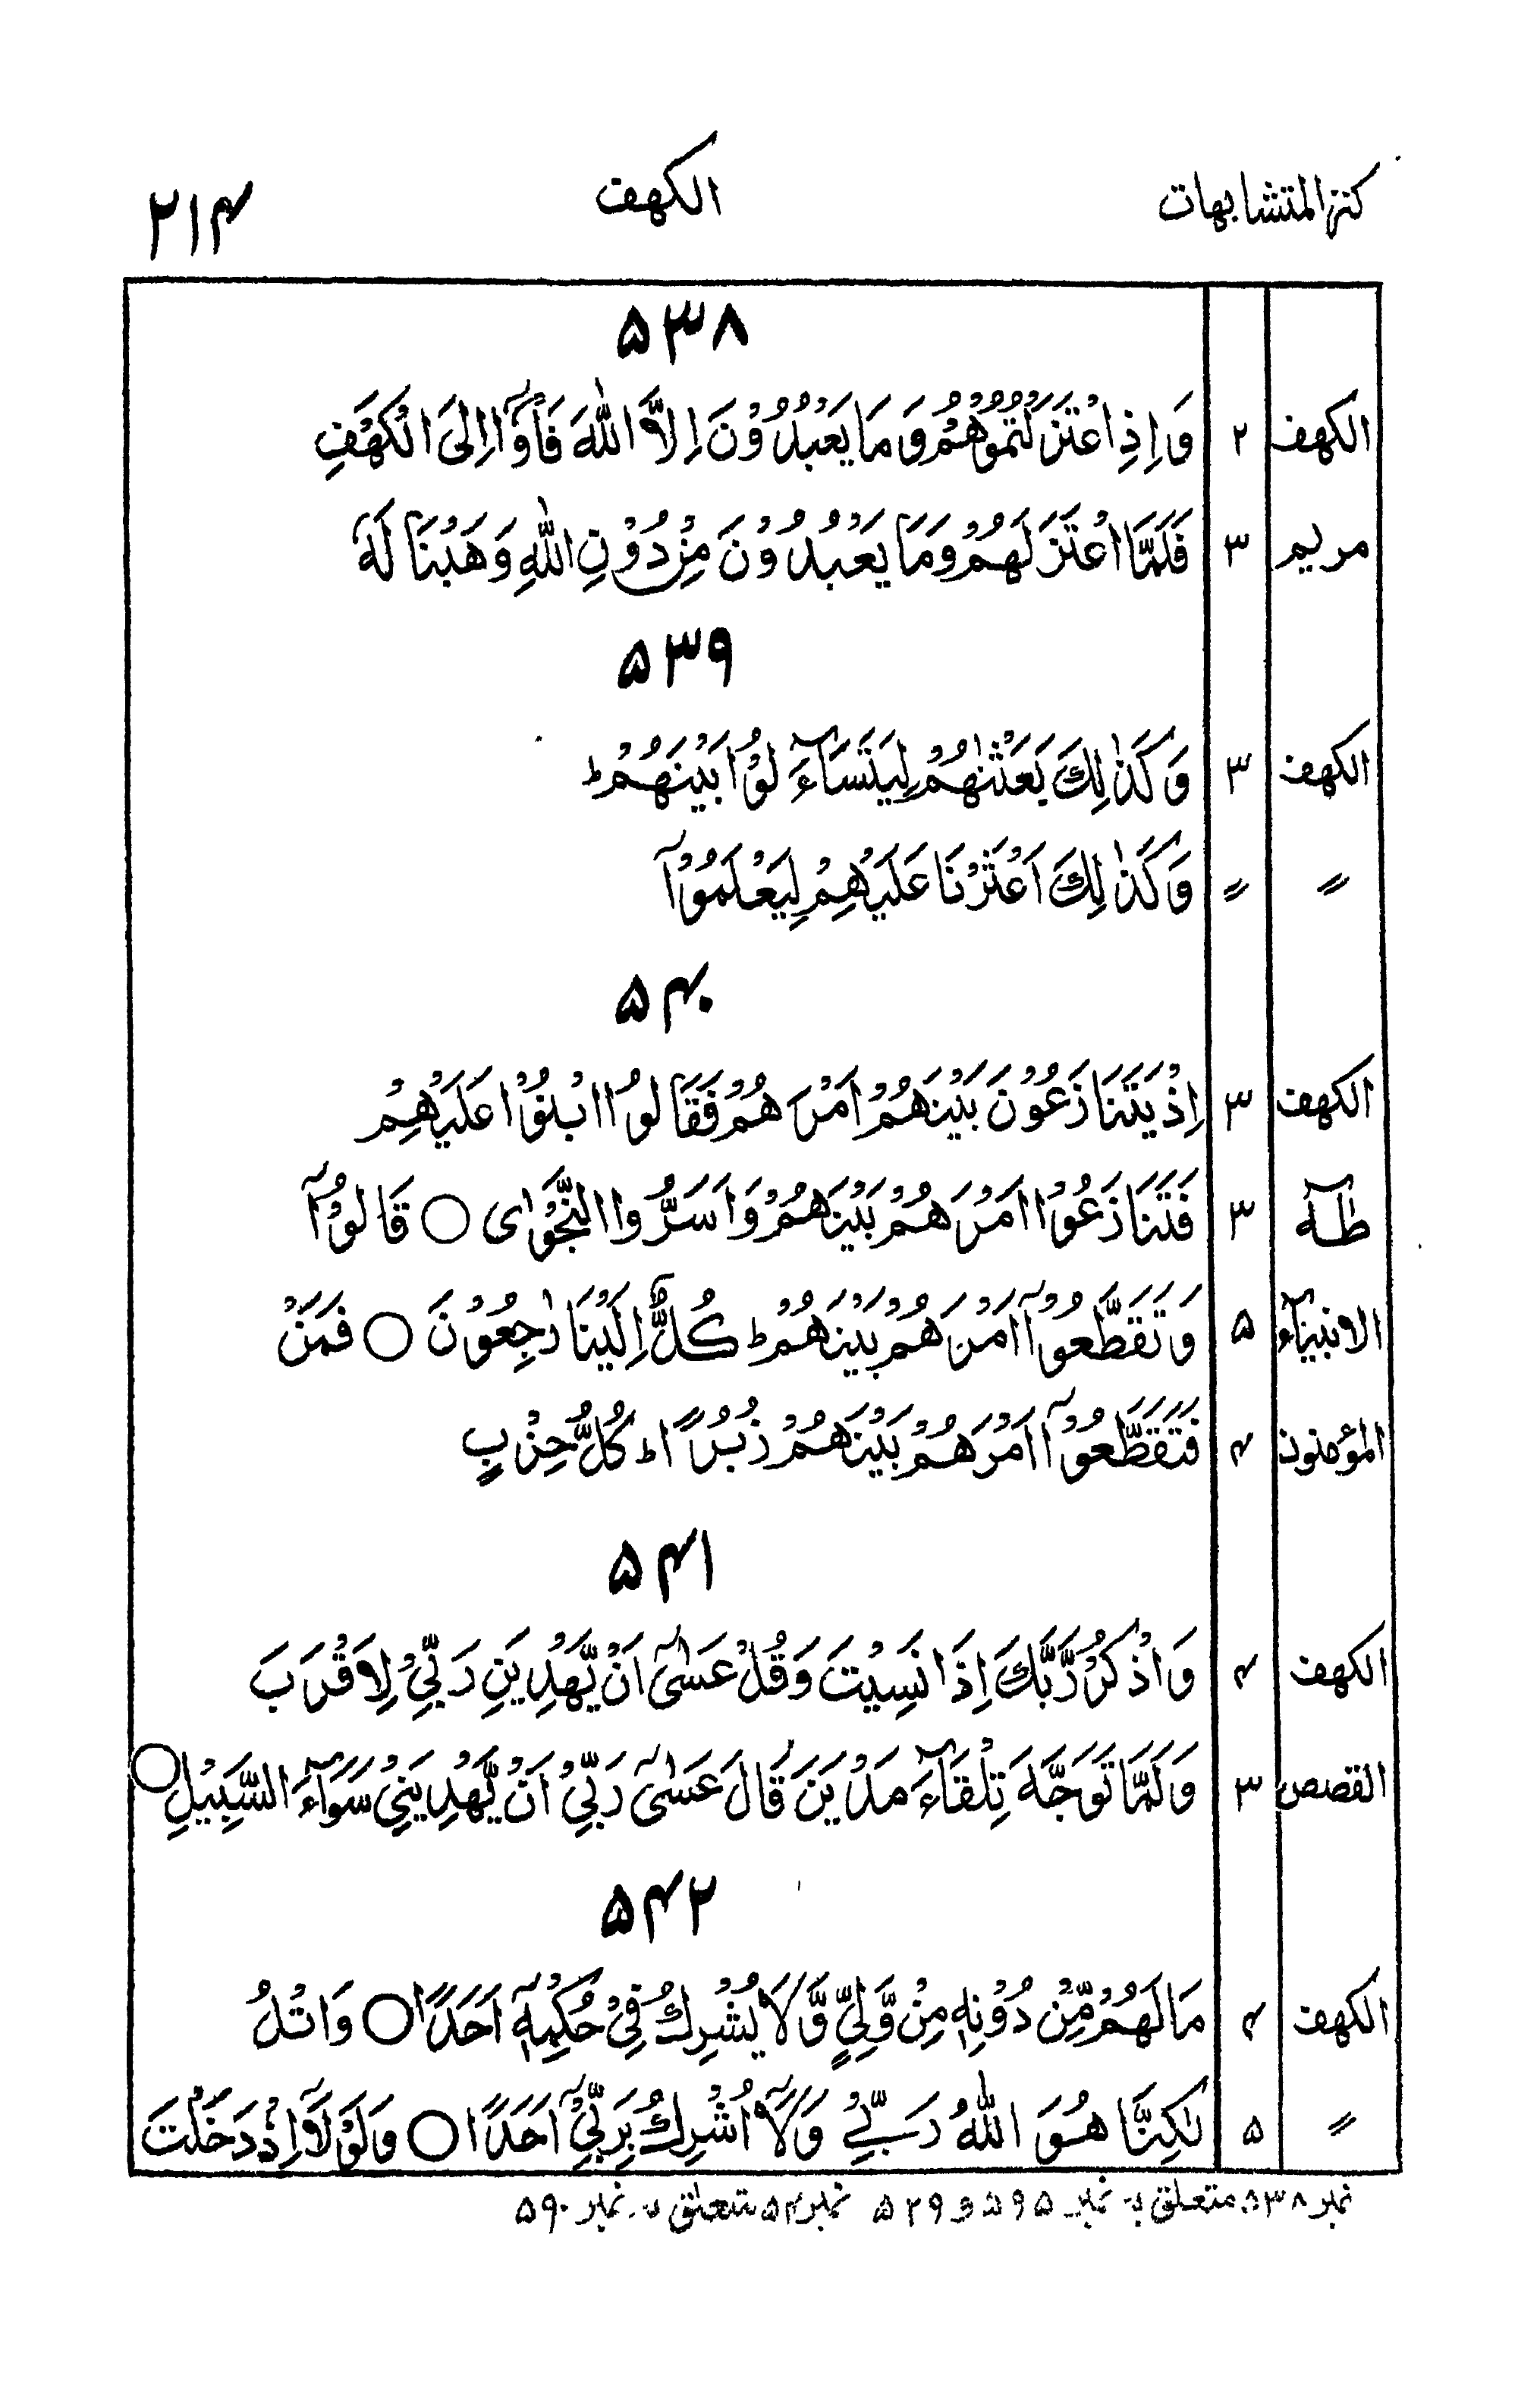 كنز المتشابهات الكهف ۲۱۴
۵۳۸
الكهف ۲ وَ اِذِ اعْتَزَلْتُمُوْهُمْ وَ مَا يَعْبُدُوْنَ اِلَّا اللّٰهَ فَاْوٗۤا اِلَى الْكَهْفِ
مريم ۳ فَلَمَّا اعْتَزَلَهُمْ وَمَا يَعْبُدُوْنَ مِنْ دُوْنِ اللّٰهِ وَهَبْنَا لَهٗۤ
۵۳۹
الكهف ۳ وَ كَذٰلِكَ بَعَثْنٰهُمْ لِيَتَسَآءَلُوْا بَيْنَهُمْ ؕ
〃 〃 وَ كَذٰلِكَ اَعْثَرْنَا عَلَيْهِمْ لِيَعْلَمُوْۤا
۵۴۰
الكهف ۳ اِذْ يَتَنَازَعُوْنَ بَيْنَهُمْ اَمْرَهُمْ فَقَالُوا ابْنُوْا عَلَيْهِمْ
طٰهٰ ۳ فَتَنَازَعُوْا اَمْرَهُمْ بَيْنَهُمْ وَ اَسَرُّوا النَّجْوٰى ○ قَالُوْۤا
الانبيآء ۵ وَ تَقَطَّعُوْۤا اَمْرَهُمْ بَيْنَهُمْ ؕ كُلٌّ اِلَيْنَا رٰجِعُوْنَ ○ فَمَنْ
المؤمنون ۴ فَتَقَطَّعُوْۤا اَمْرَهُمْ بَيْنَهُمْ زُبُرًا ؕ كُلُّ حِزْبٍ
۵۴۱
الكهف ۴ وَ اذْكُرْ رَّبَّكَ اِذَا نَسِيْتَ وَ قُلْ عَسٰۤى اَنْ يَّهْدِيَنِ رَبِّيْ لِاَقْرَبَ
القصص ۳ وَ لَمَّا تَوَجَّهَ تِلْقَآءَ مَدْيَنَ قَالَ عَسٰى رَبِّيْۤ اَنْ يَّهْدِيَنِيْ سَوَآءَ السَّبِيْلِ ○
۵۴۲
الكهف ۴ مَا لَهُمْ مِّنْ دُوْنِهٖ مِنْ وَّلِيٍّ وَّ لَا يُشْرِكُ فِيْ حُكْمِهٖۤ اَحَدًا ○ وَ اتْلُ
〃 ۵ لٰكِنَّا هُوَ اللّٰهُ رَبِّيْ وَ لَاۤ اُشْرِكُ بِرَبِّيْۤ اَحَدًا ○ وَ لَوْ لَاۤ اِذْ دَخَلْتَ
نمبر ۵۳۸ متعلق بہ نمبر ۵۹۵ و ۵۲۹ نمبر ۵۴۰ متعلق بہ نمبر ۵۹۰